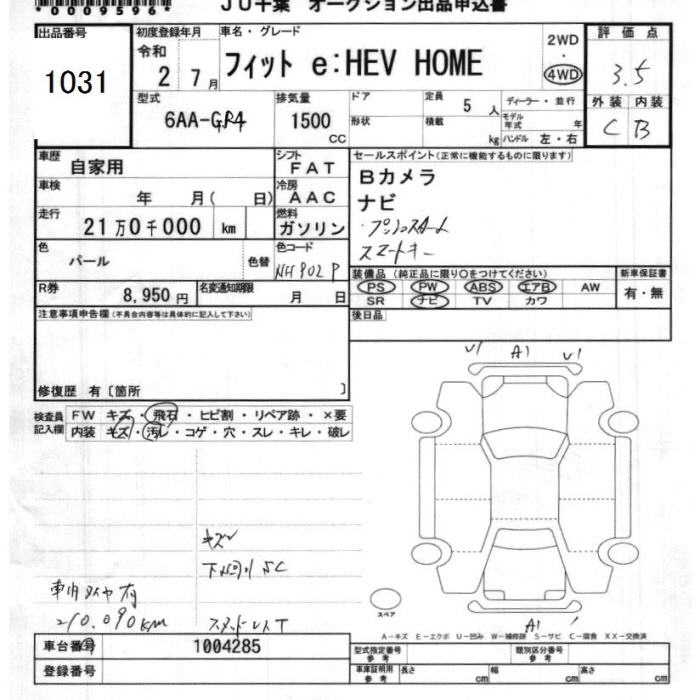 *0009596*
JU千葉 オークション出品申込書
出品番号
1031
初度登録年月
令和
2年7月
車名・グレード
フィット e:HEV HOME
2WD
・
4WD
評価点
3.5
外装 内装
C B
型式
6AA-GR4
排気量
1500
CC
ドア
形状
定員
5 人
積載
kg
ディーラー・並行
モデル年式 年
ハンドル 左・右
車歴
自家用
シフト
FAT
車検
年 月( 日)
冷房
AAC
走行
21万0千000 km
燃料
ガソリン
色
パール
色替
色コード
NH902P
R券
8,950円
名変通知期限
月 日
セールスポイント(正常に機能するものに限ります)
Bカメラ
ナビ
・プッシュスタート
スマートキー
装備品 (純正品に限り○をつけてください)
PS PW ABS エアB AW
SR ナビ TV カワ
新車保証書
有・無
後日品
注意事項申告欄(不具合内容等は具体的に記入して下さい)
修復歴 有〔箇所 〕
検査員
記入欄
FW キズ・飛石・ヒビ割・リペア跡・×要
内装 キズ・汚レ・コゲ・穴・スレ・キレ・破レ
U1 A1 U1
A1
スペア
A-キズ E-エクボ U-凹み W-補修跡 S-サビ C-腐食 XX-交換済
キズ
下廻り SC
車内タイヤ有
210.090km
スタッドレスT
車台番号
1004285
登録番号
型式指定番号
参考
類別区分番号
参考
車庫証明用
参考
長さ cm
幅 cm
高さ cm